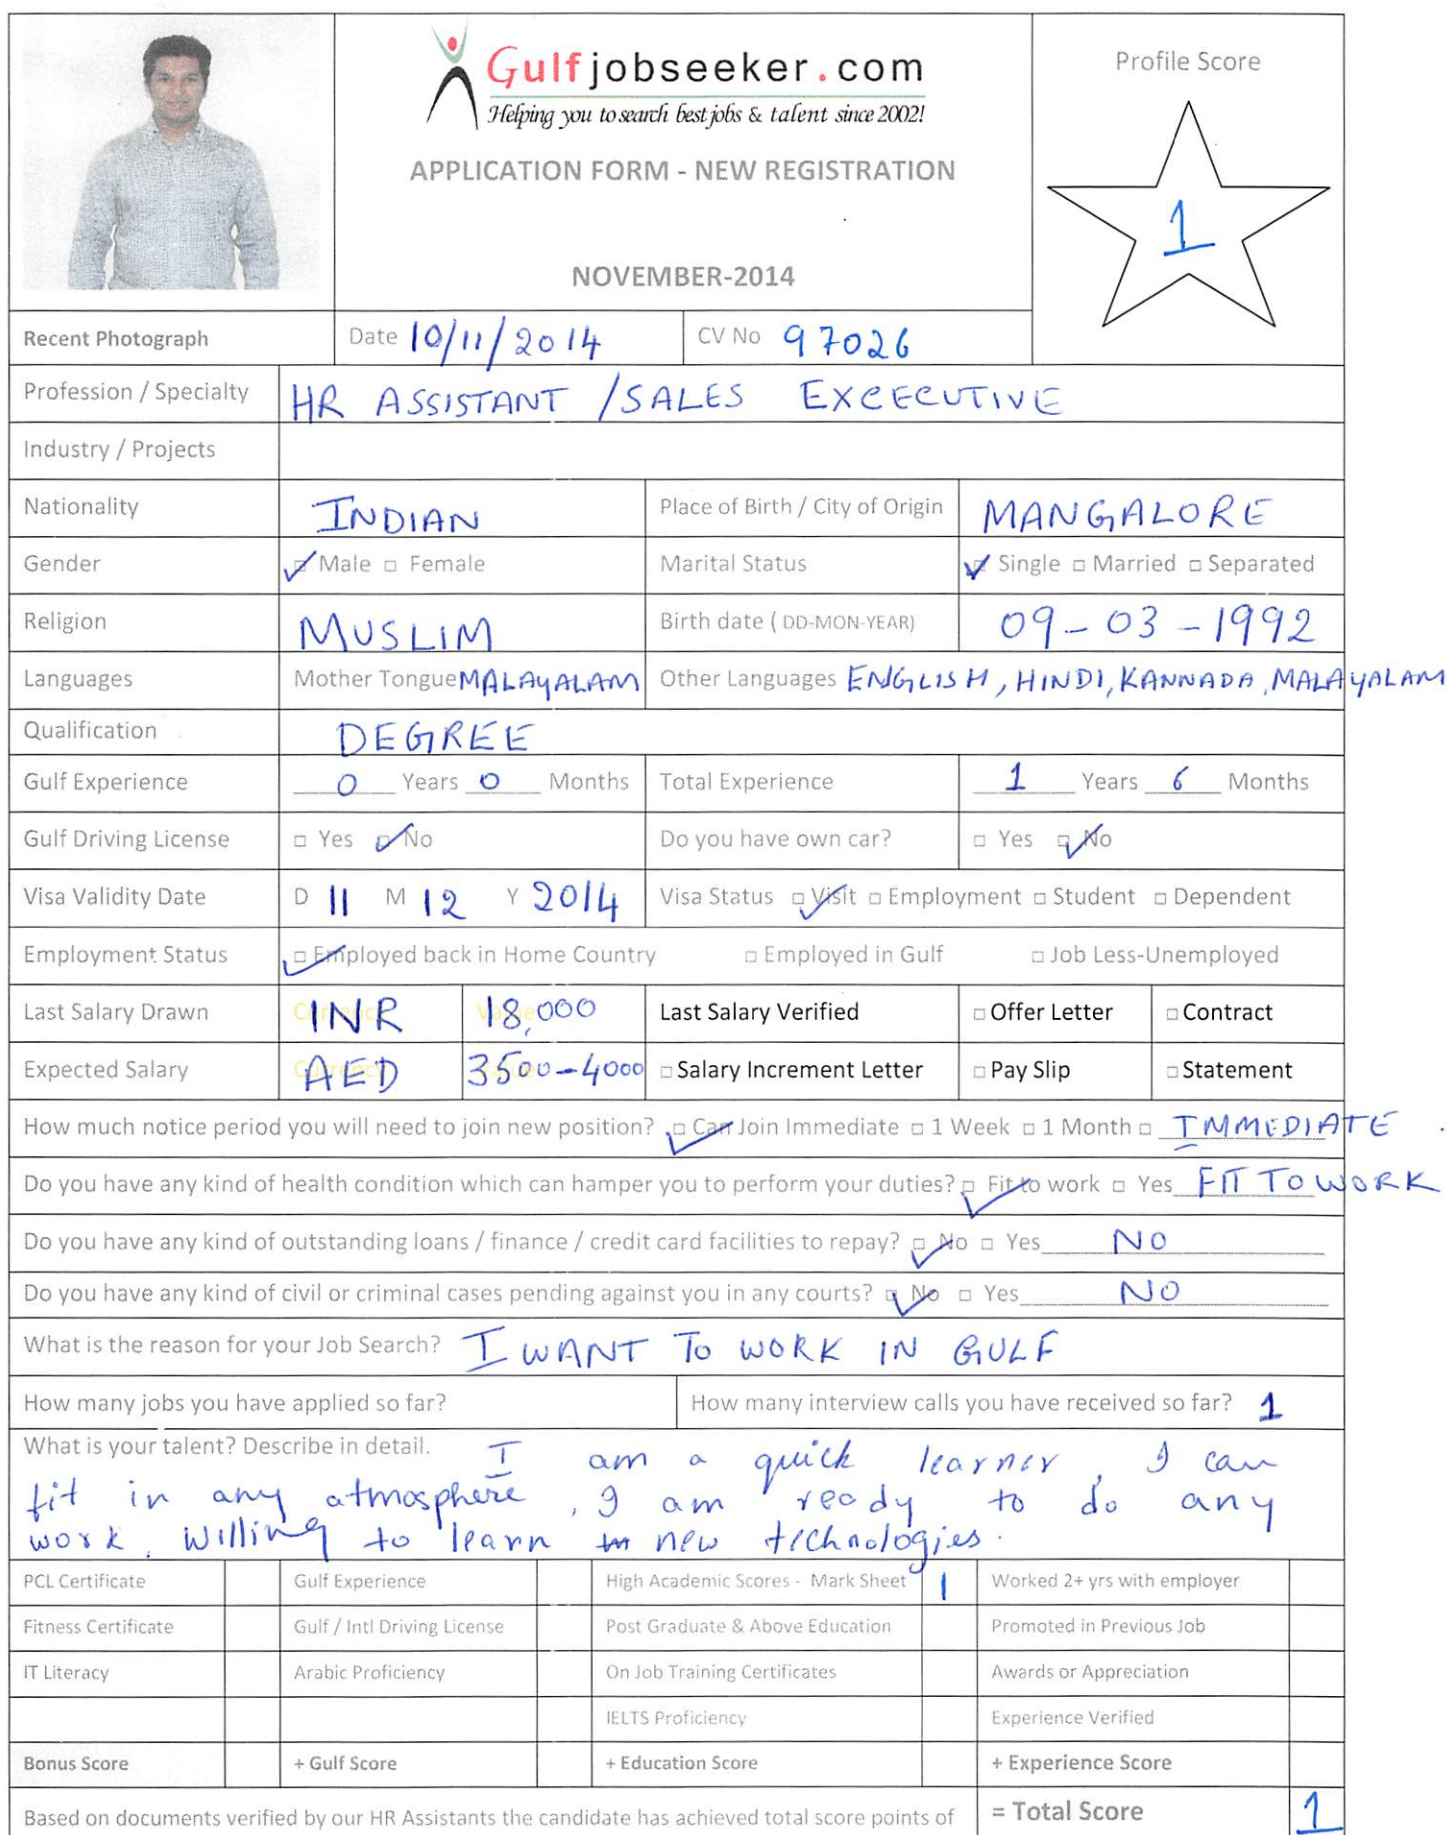 Gulfjobseeker.com
Helping you to search best jobs & talent since 2002!
Profile Score
APPLICATION FORM - NEW REGISTRATION
1
NOVEMBER-2014
Recent Photograph Date 10/11/2014 CV No 97026
Profession / Specialty HR ASSISTANT /SALES EXCECUTIVE
Industry / Projects
Nationality INDIAN Place of Birth / City of Origin MANGALORE
Gender ✓ Male □ Female Marital Status ✓ Single □ Married □ Separated
Religion MUSLIM Birth date ( DD-MON-YEAR) 09-03-1992
Languages Mother Tongue MALAYALAM Other Languages ENGLISH, HINDI, KANNADA, MALAYALAM
Qualification DEGREE
Gulf Experience 0 Years 0 Months Total Experience 1 Years 6 Months
Gulf Driving License □ Yes ✓ No Do you have own car? □ Yes ✓ No
Visa Validity Date D 11 M 12 Y 2014 Visa Status ✓ Visit □ Employment □ Student □ Dependent
Employment Status ✓ Employed back in Home Country □ Employed in Gulf □ Job Less-Unemployed
Last Salary Drawn Currency INR Value 18,000 Last Salary Verified □ Offer Letter □ Contract
Expected Salary Currency AED 3500-4000 □ Salary Increment Letter □ Pay Slip □ Statement
How much notice period you will need to join new position? ✓ Can Join Immediate □ 1 Week □ 1 Month □ IMMEDIATE
Do you have any kind of health condition which can hamper you to perform your duties? ✓ Fit to work □ Yes FIT TO WORK
Do you have any kind of outstanding loans / finance / credit card facilities to repay? ✓ No □ Yes NO
Do you have any kind of civil or criminal cases pending against you in any courts? ✓ No □ Yes NO
What is the reason for your Job Search? I WANT TO WORK IN GULF
How many jobs you have applied so far? How many interview calls you have received so far? 1
What is your talent? Describe in detail. I am a quick learner, I can
fit in any atmosphere, I am ready to do any
work. Willing to learn new technologies.
PCL Certificate Gulf Experience High Academic Scores - Mark Sheet 1 Worked 2+ yrs with employer
Fitness Certificate Gulf / Intl Driving License Post Graduate & Above Education Promoted in Previous Job
IT Literacy Arabic Proficiency On Job Training Certificates Awards or Appreciation
IELTS Proficiency Experience Verified
Bonus Score + Gulf Score + Education Score + Experience Score
Based on documents verified by our HR Assistants the candidate has achieved total score points of = Total Score 1